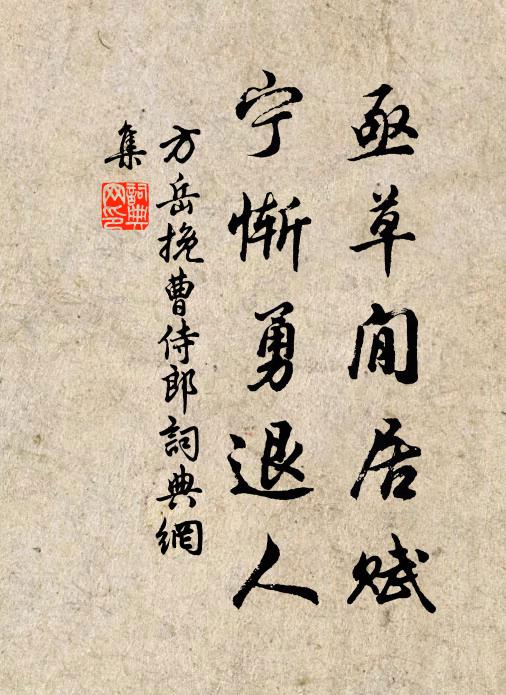 亟草閒居赋
宁惭勇退人
方岳挽曹侍郎詞典網
集
詞典
网印